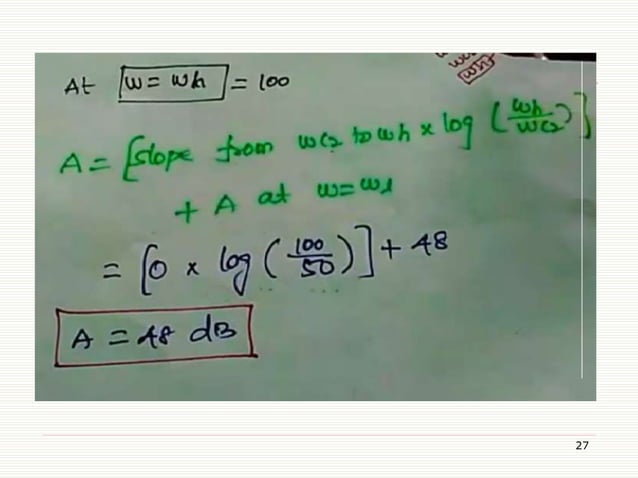 At w = wh = 100
A = [slope from wc2 to wh × log (wh/wc2)]
+ A at w=w1
= [0 × log (100/50)] + 48
A = 48 dB
27